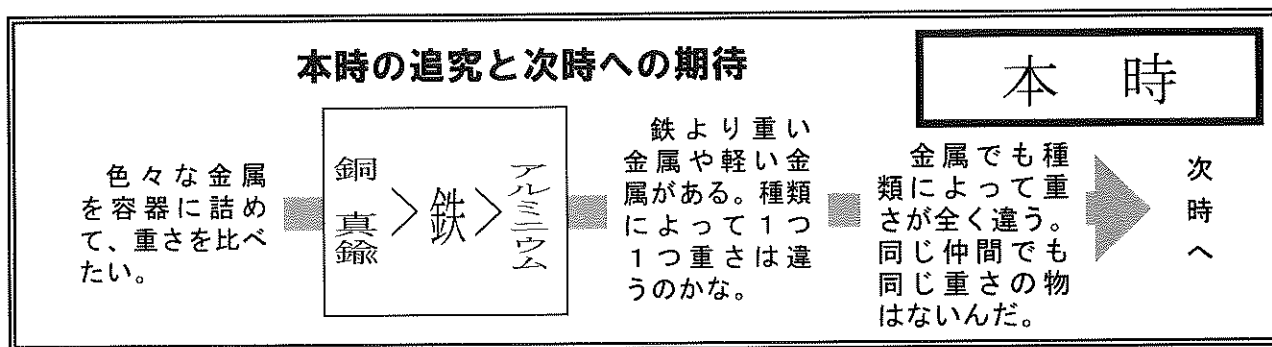 本時の追究と次時への期待
本 時
色々な金属
を容器に詰め
て、重さを比べ
たい。
銅
真鍮
>鉄>
アルミニウム
鉄より重い
金属や軽い金
属がある。種類
によって１つ
１つ重さは違
うのかな。
金属でも種
類によって重
さが全く違う。
同じ仲間でも
同じ重さの物
はないんだ。
次時へ